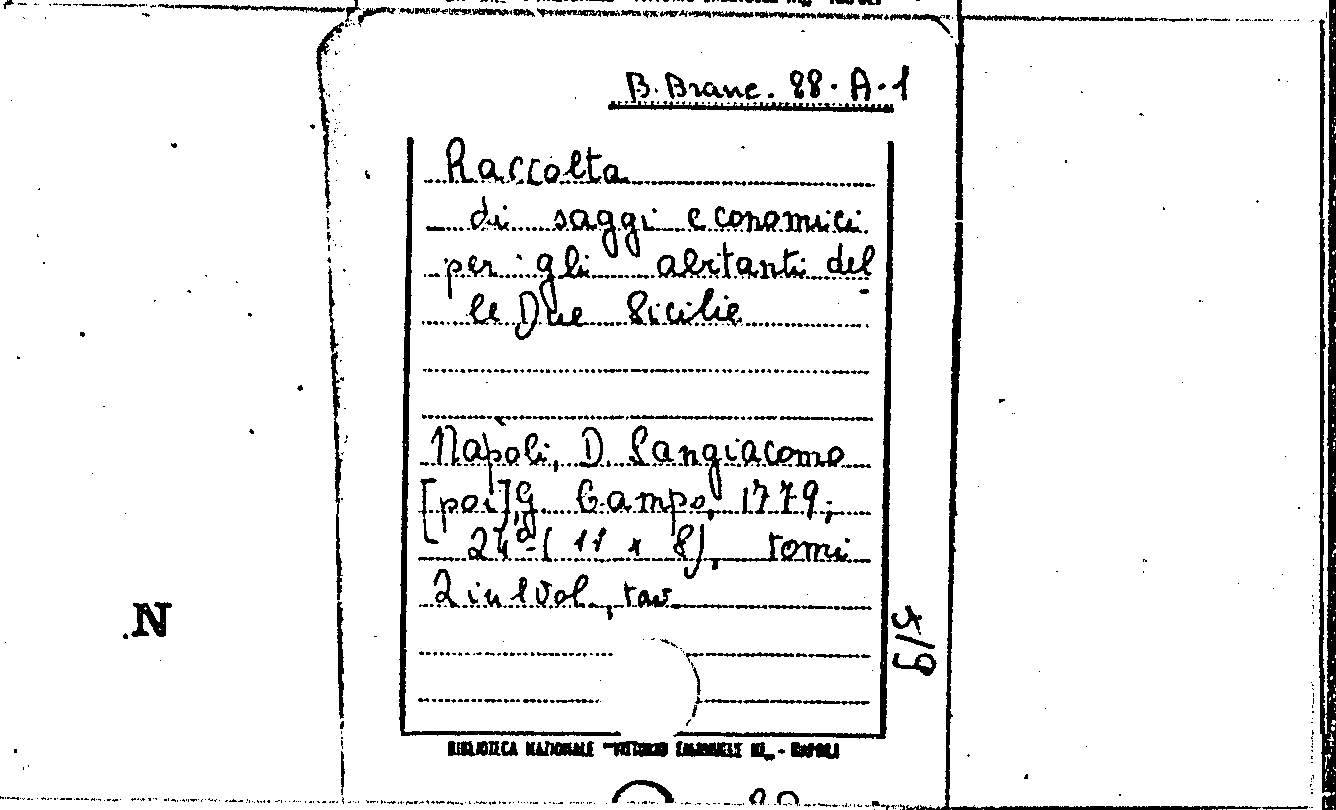 B. Branc. 88. A. 1
Raccolta
di saggi economici
per gli abitanti del
le Due Sicilie
Napoli, D. Sangiacomo
[poi] G. Campo, 1779;
24°-( 11 x 8), tomi
2 in 1 vol., tav.
5/9
N
BIBLIOTECA NAZIONALE "VITTORIO EMANUELE III„ - NAPOLI